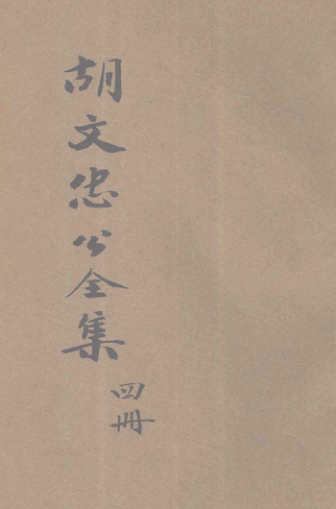 胡文忠公全集
四冊